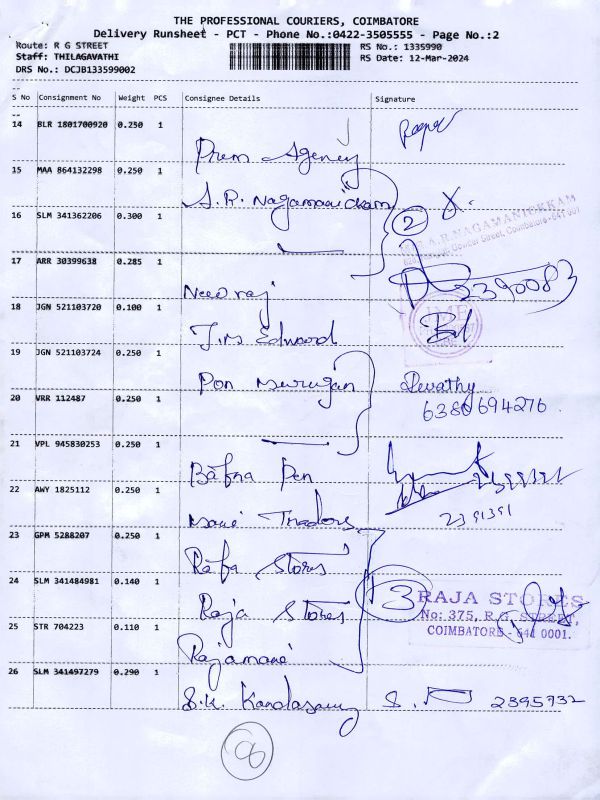 THE PROFESSIONAL COURIERS, COIMBATORE
Delivery Runsheet - PCT - Phone No.:0422-3505555 - Page No.:2
Route: R G STREET RS No.: 1335990
Staff: THILAGAVATHI RS Date: 12-Mar-2024
DRS No.: DCJB133599002
S No Consignment No Weight PCS Consignee Details Signature
14 BLR 1801700920 0.250 1 Prem Agency
15 MAA 864132298 0.250 1 A.R. Nagamanickam
16 SLM 341362206 0.300 1 2
A.R.NAGAMANICKKAM
Street, Coimbatore-641 001
17 ARR 30399638 0.285 1 Neeraj 2390083
18 JGN 521103720 0.100 1 J.M. Edward
19 JGN 521103724 0.250 1 Pon Murugan Revathy
20 VRR 112487 0.250 1 6380694276
21 VPL 945830253 0.250 1 Bafna Pen
22 AWY 1825112 0.250 1 Mani Traders 2391391
23 GPM 5288207 0.250 1 Rafa Stores
24 SLM 341484981 0.140 1 Raja Stores 3
RAJA STORES
No: 375, R.G. STREET,
COIMBATORE - 641 0001.
25 STR 704223 0.110 1 Rajamani
26 SLM 341497279 0.290 1 S.K. Kandasamy 2395732
8